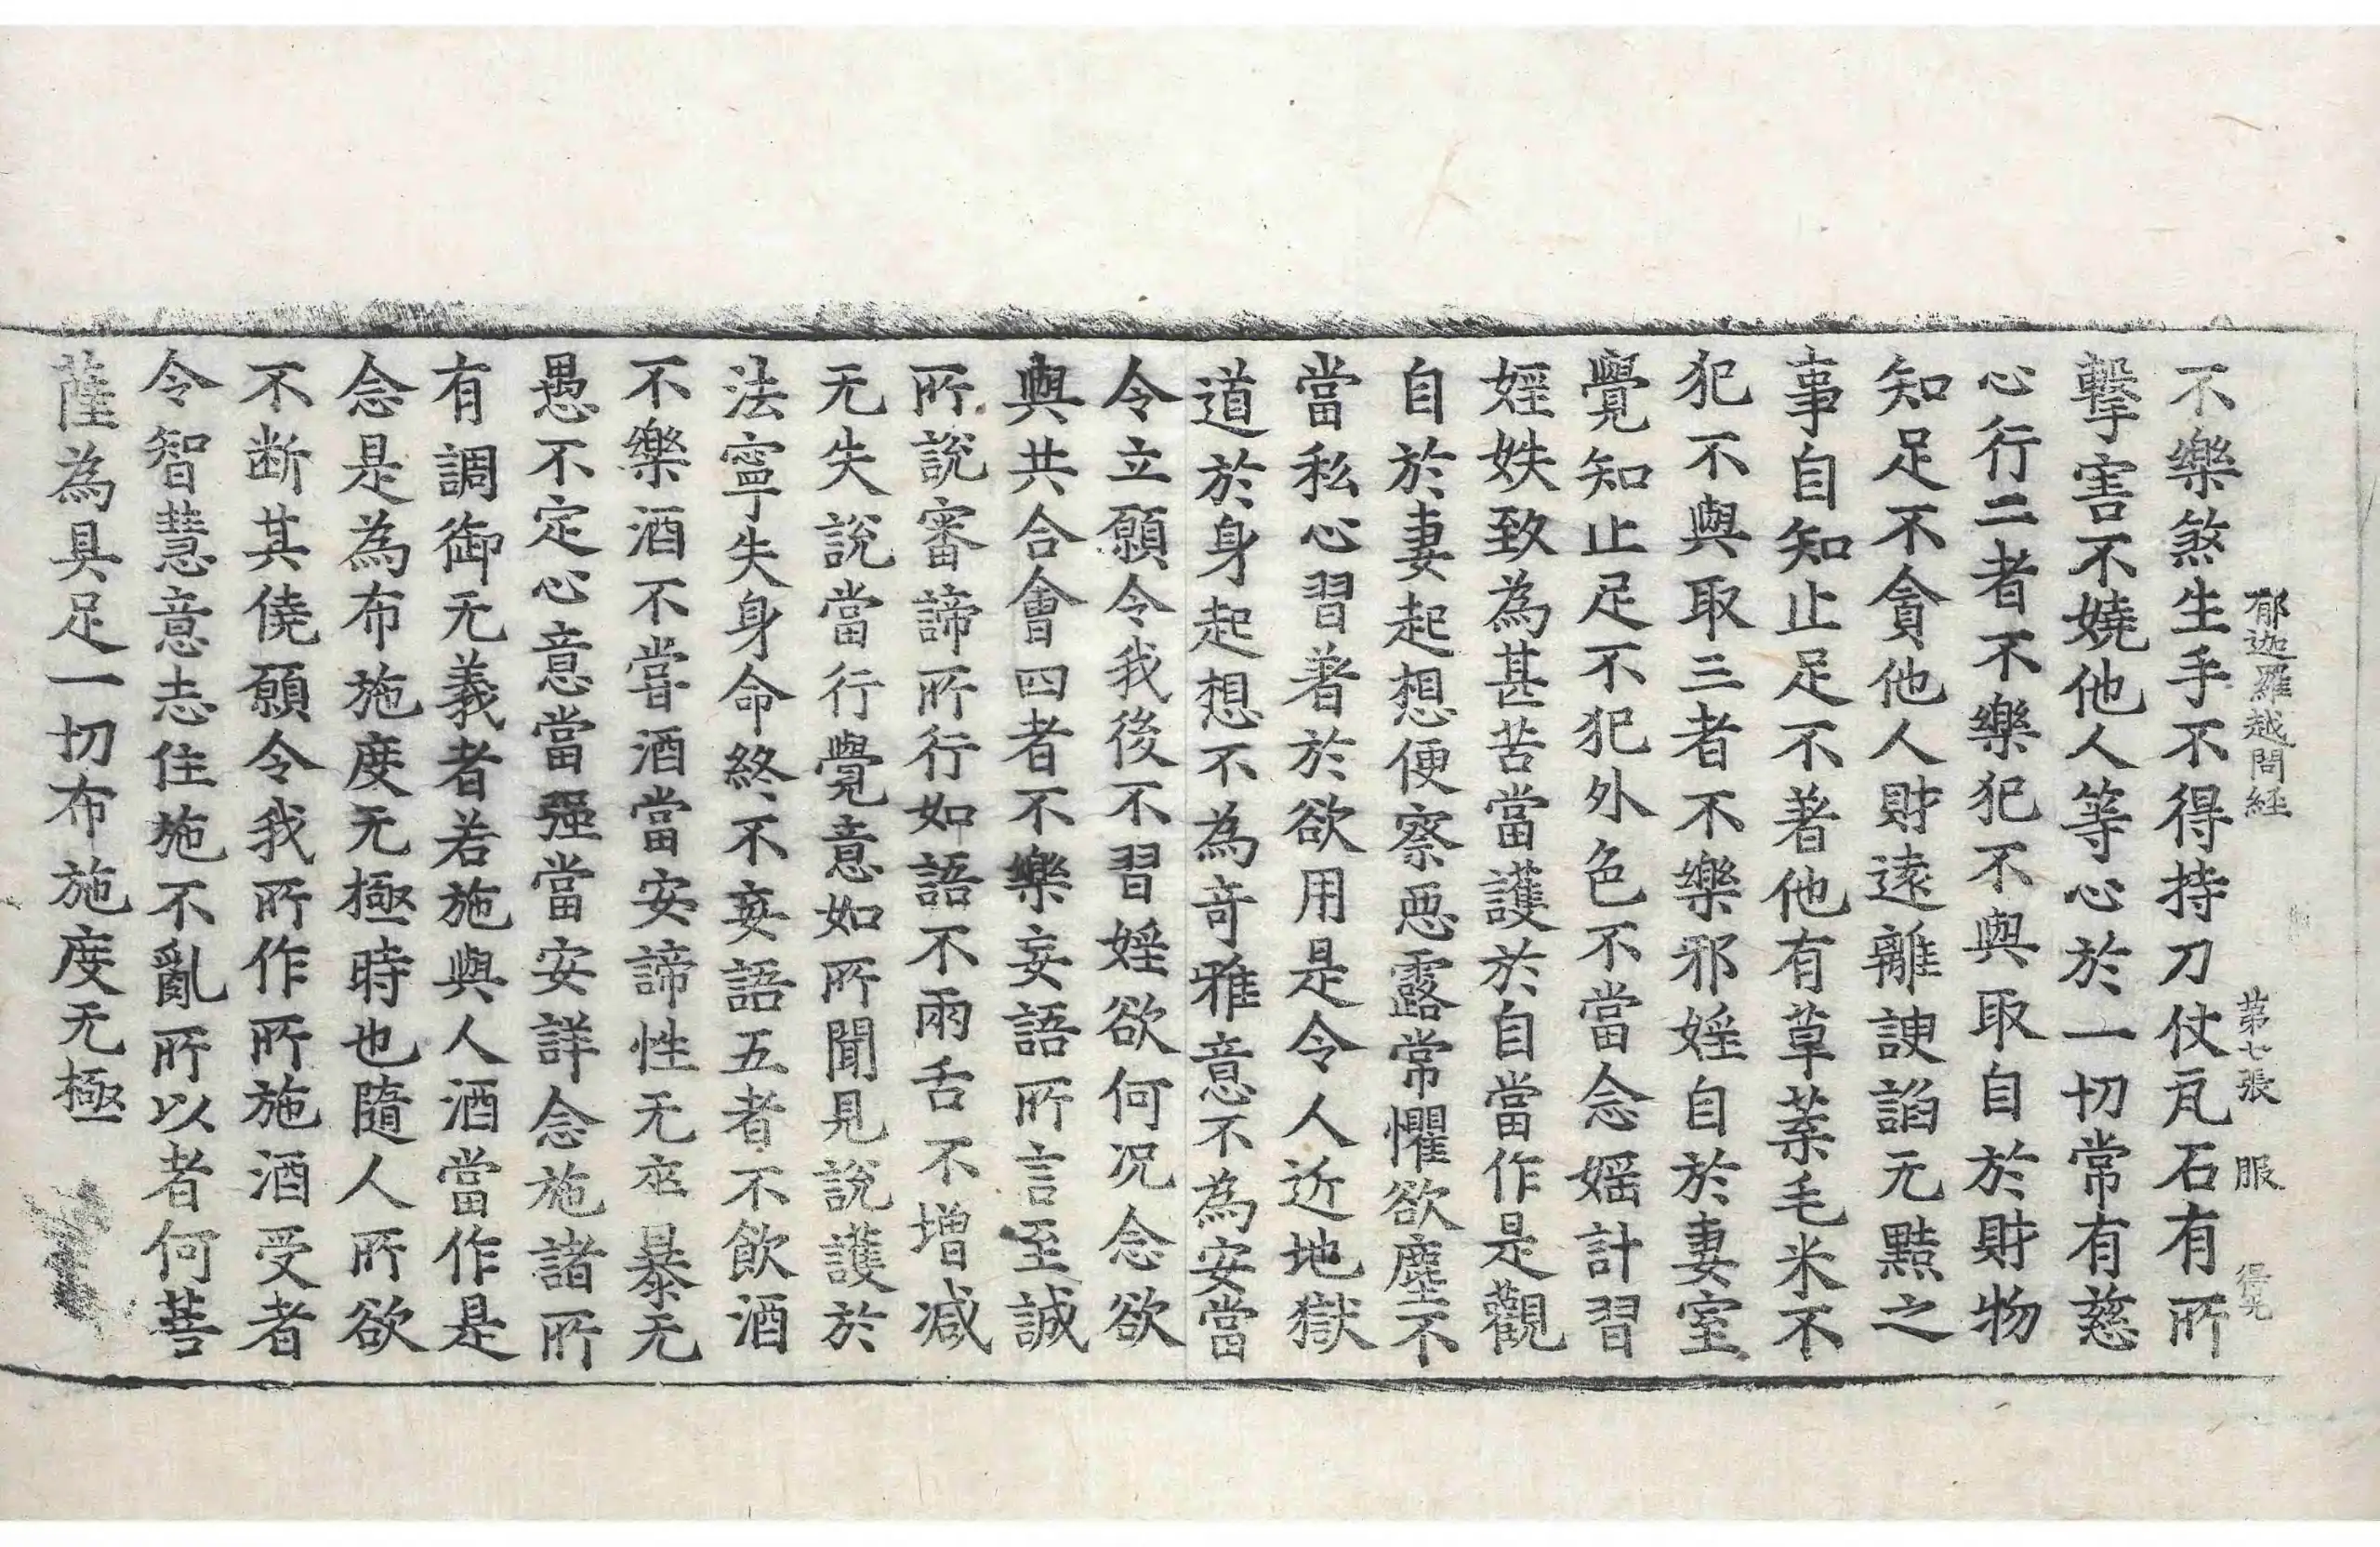 郁迦羅越問経 第七張 服 得光
不樂煞生手不得持刀仗瓦石有所
擊害不嬈他人等心於一切常有慈
心行二者不樂犯不與取自於財物
知足不貪他人財遠離諛諂无黠之
事自知止足不著他有草葉毛米不
犯不與取三者不樂邪婬自於妻室
覺知止足不犯外色不當念婬計習
婬妷致為甚苦當護於自當作是觀
自於妻起想便察惡露常懼欲塵不
當私心習著於欲用是令人近地獄
道於身起想不為奇雅意不為安當
令立願令我後不習婬欲何況念欲
與共合會四者不樂妄語所言至誠
所說審諦所行如語不兩舌不增減
无失說當行覺意如所聞見說護於
法寧失身命終不妄語五者不飲酒
不樂酒不甞酒當安諦性无卒暴无
愚不定心意當强當安詳念施諸所
有調御无義者若施與人酒當作是
念是為布施度无極時也隨人所欲
不断其僥願令我所作所施酒受者
令智慧意志住施不亂所以者何菩
薩為具足一切布施度无極